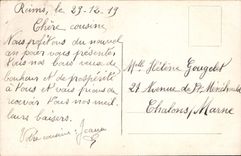 Reims, le 29-12-19
Chère cousine,
Nous profitons du nouvel
an pour vous présenter
tous nos bons vœux de
bonheur et de prospérité
à tous et vous prions de
recevoir tous nos meil
leurs baisers.
Votre cousine: Jeanne
Mlle Hélène Gouget
28 Avenue de Ste Ménehould
Chalons / Marne